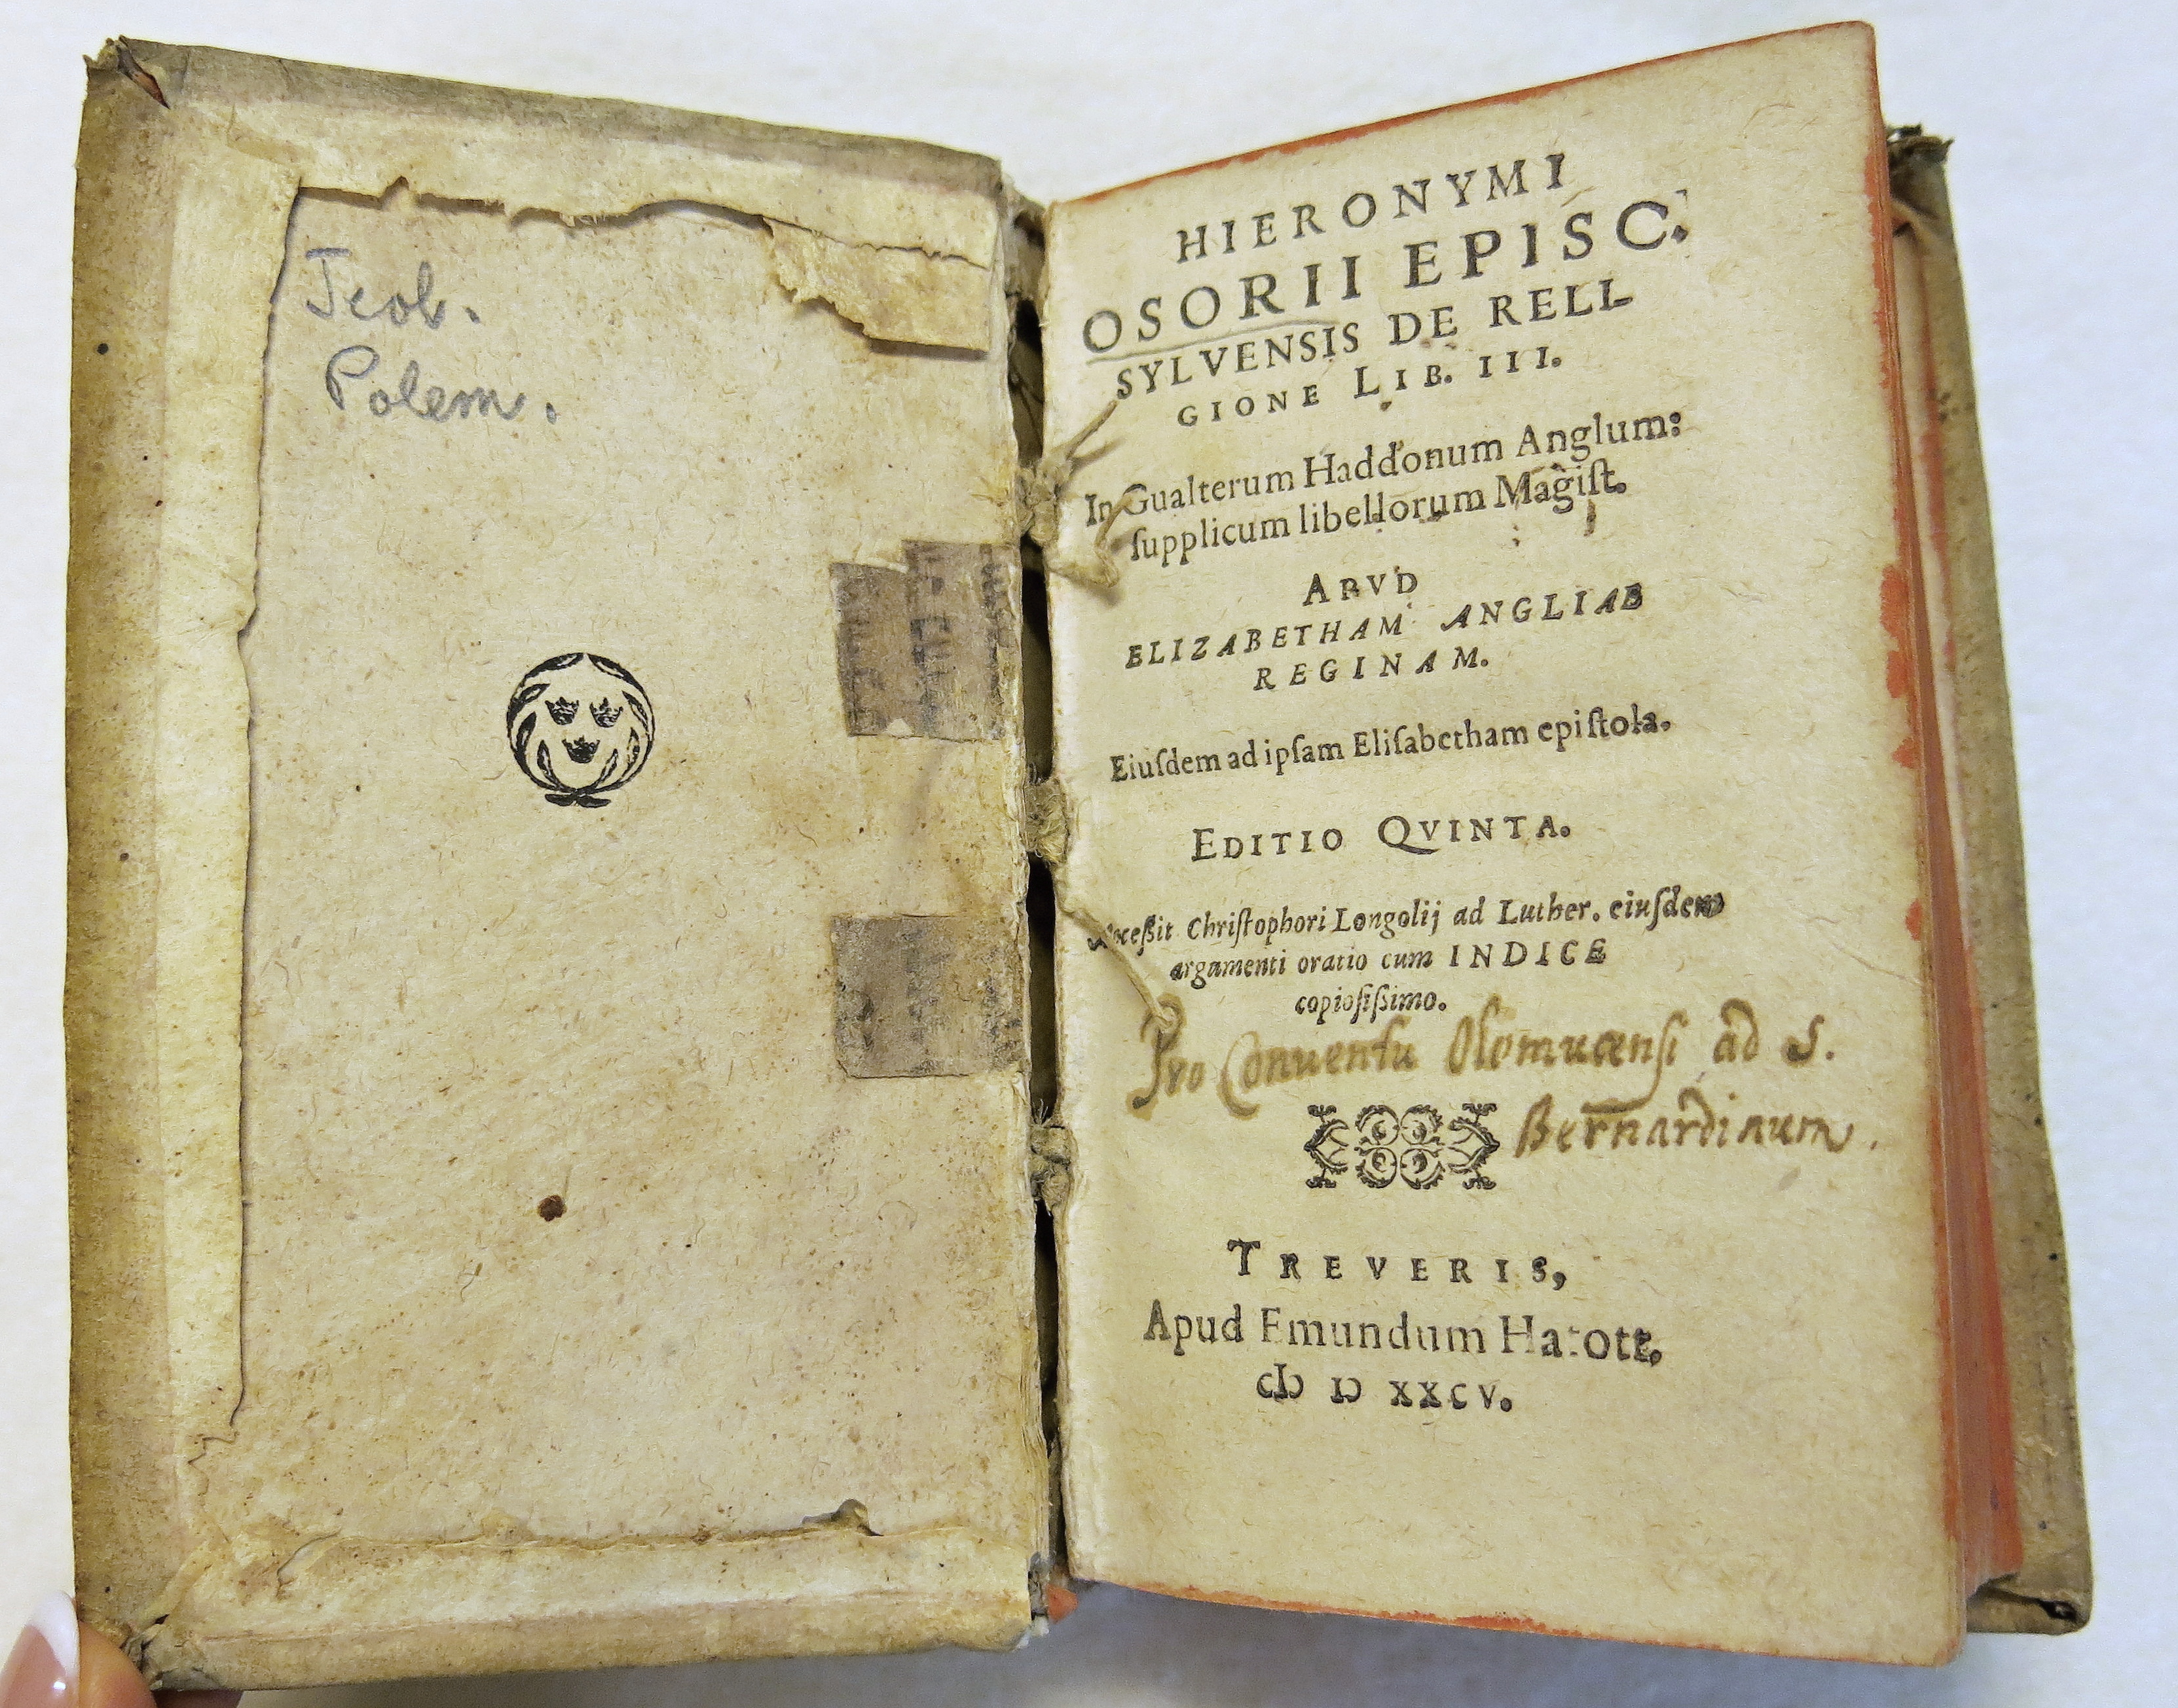 Teol.
Polem.
HIERONYMI
OSORII EPISC.
SYLVENSIS DE RELI-
GIONE LIB. III.
In Gualterum Haddonum Anglum:
ſupplicum libellorum Magiſt.
APVD
ELIZABETHAM ANGLIAE
REGINAM.
Eiuſdem ad ipſam Eliſabetham epiſtola.
EDITIO QVINTA.
Acceßit Chriſtophori Longolij ad Luther. eiuſdem
argumenti oratio cum INDICE
copioſißimo.
Pro Conuentu Olomucenſi ad S.
Bernardinum.
TREVERIS,
Apud Emundum Hatott,
CIↃ IↃ XXCV.